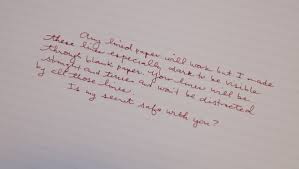 Any lined paper will work but I made
these lines especially dark to be visible
through blank paper. Your lines will be
straight and truer and won't be distracted
by all those lines.
Is my secret safe with you?